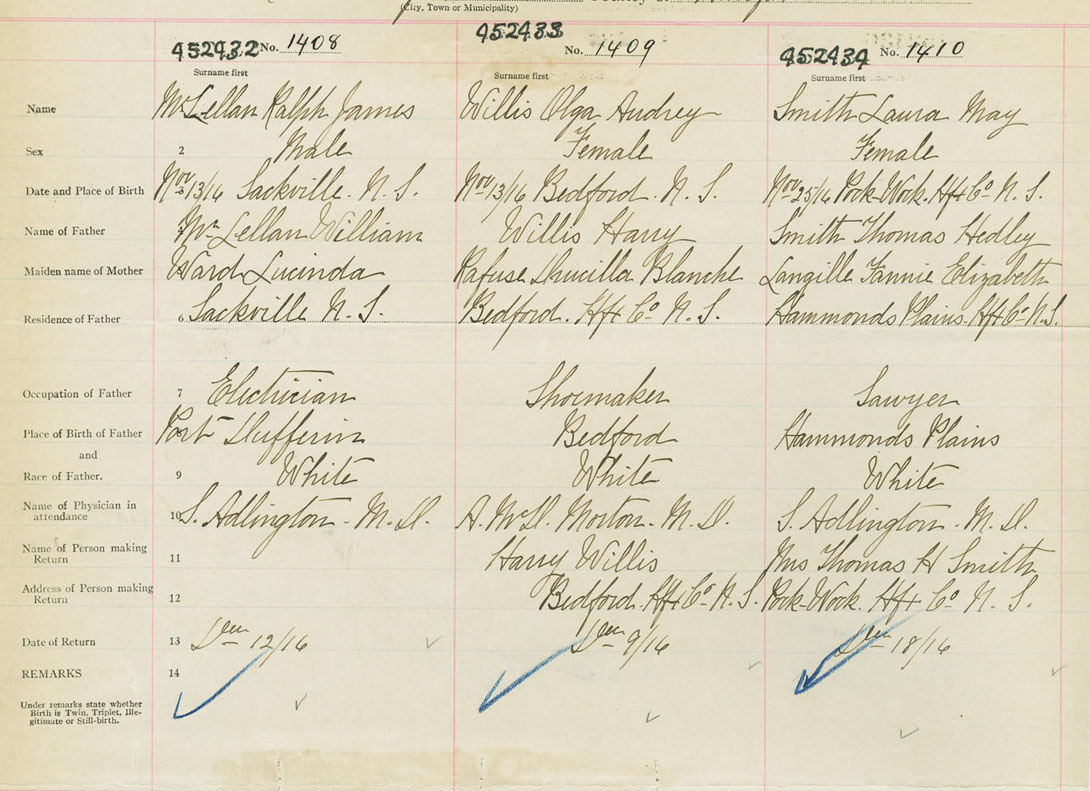 (City, Town or Municipality)
452432 No. 1408 452433 No. 1409 452434 No. 1410
Surname first Surname first Surname first
Name McLellan Ralph James Willis Olga Audrey Smith Laura May
Sex 2 Male Female Female
Date and Place of Birth 3 Nov 13/16 Sackville. N. S. Nov 13/16 Bedford. N. S. Nov 25/16 Pock-Wock. Hfx Co N. S.
Name of Father 4 McLellan William Willis Harry Smith Thomas Hedley
Maiden name of Mother 5 Ward Lucinda Rafuse Drucilla Blanche Langille Fannie Elizabeth
Residence of Father 6 Sackville N. S. Bedford. Hfx Co N. S. Hammonds Plains. Hfx Co N.S.
Occupation of Father 7 Electrician Shoemaker Sawyer
Place of Birth of Father 8 Port Dufferin Bedford Hammonds Plains
and
Race of Father. 9 White White White
Name of Physician in
attendance 10 S. Adlington - M. D. A. McD. Morton. M. D. S. Adlington. M. D.
Name of Person making
Return 11 Harry Willis Mrs Thomas H Smith
Address of Person making
Return 12 Bedford. Hfx Co N. S. Pock-Wock. Hfx Co N. S.
Date of Return 13 Dec 12/16 Dec 9/16 Dec 18/16
REMARKS 14
Under remarks state whether
Birth is Twin, Triplet, Ille-
gitimate or Still-birth.